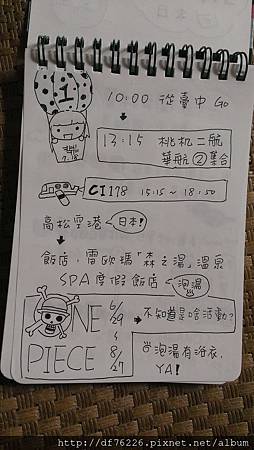 1
10:00 從臺中 Go
7.18
13:15 桃机二航
華航②集合
CI178 15:15~18:50
高松空港 日本!
飯店:雷歐瑪「森之湯」溫泉
SPA度假飯店 泡湯
ONE PIECE
6/29
8/27
不知道是啥活動?
尚泡湯有浴衣.
YA!
http://df76226.pixnet.net/album